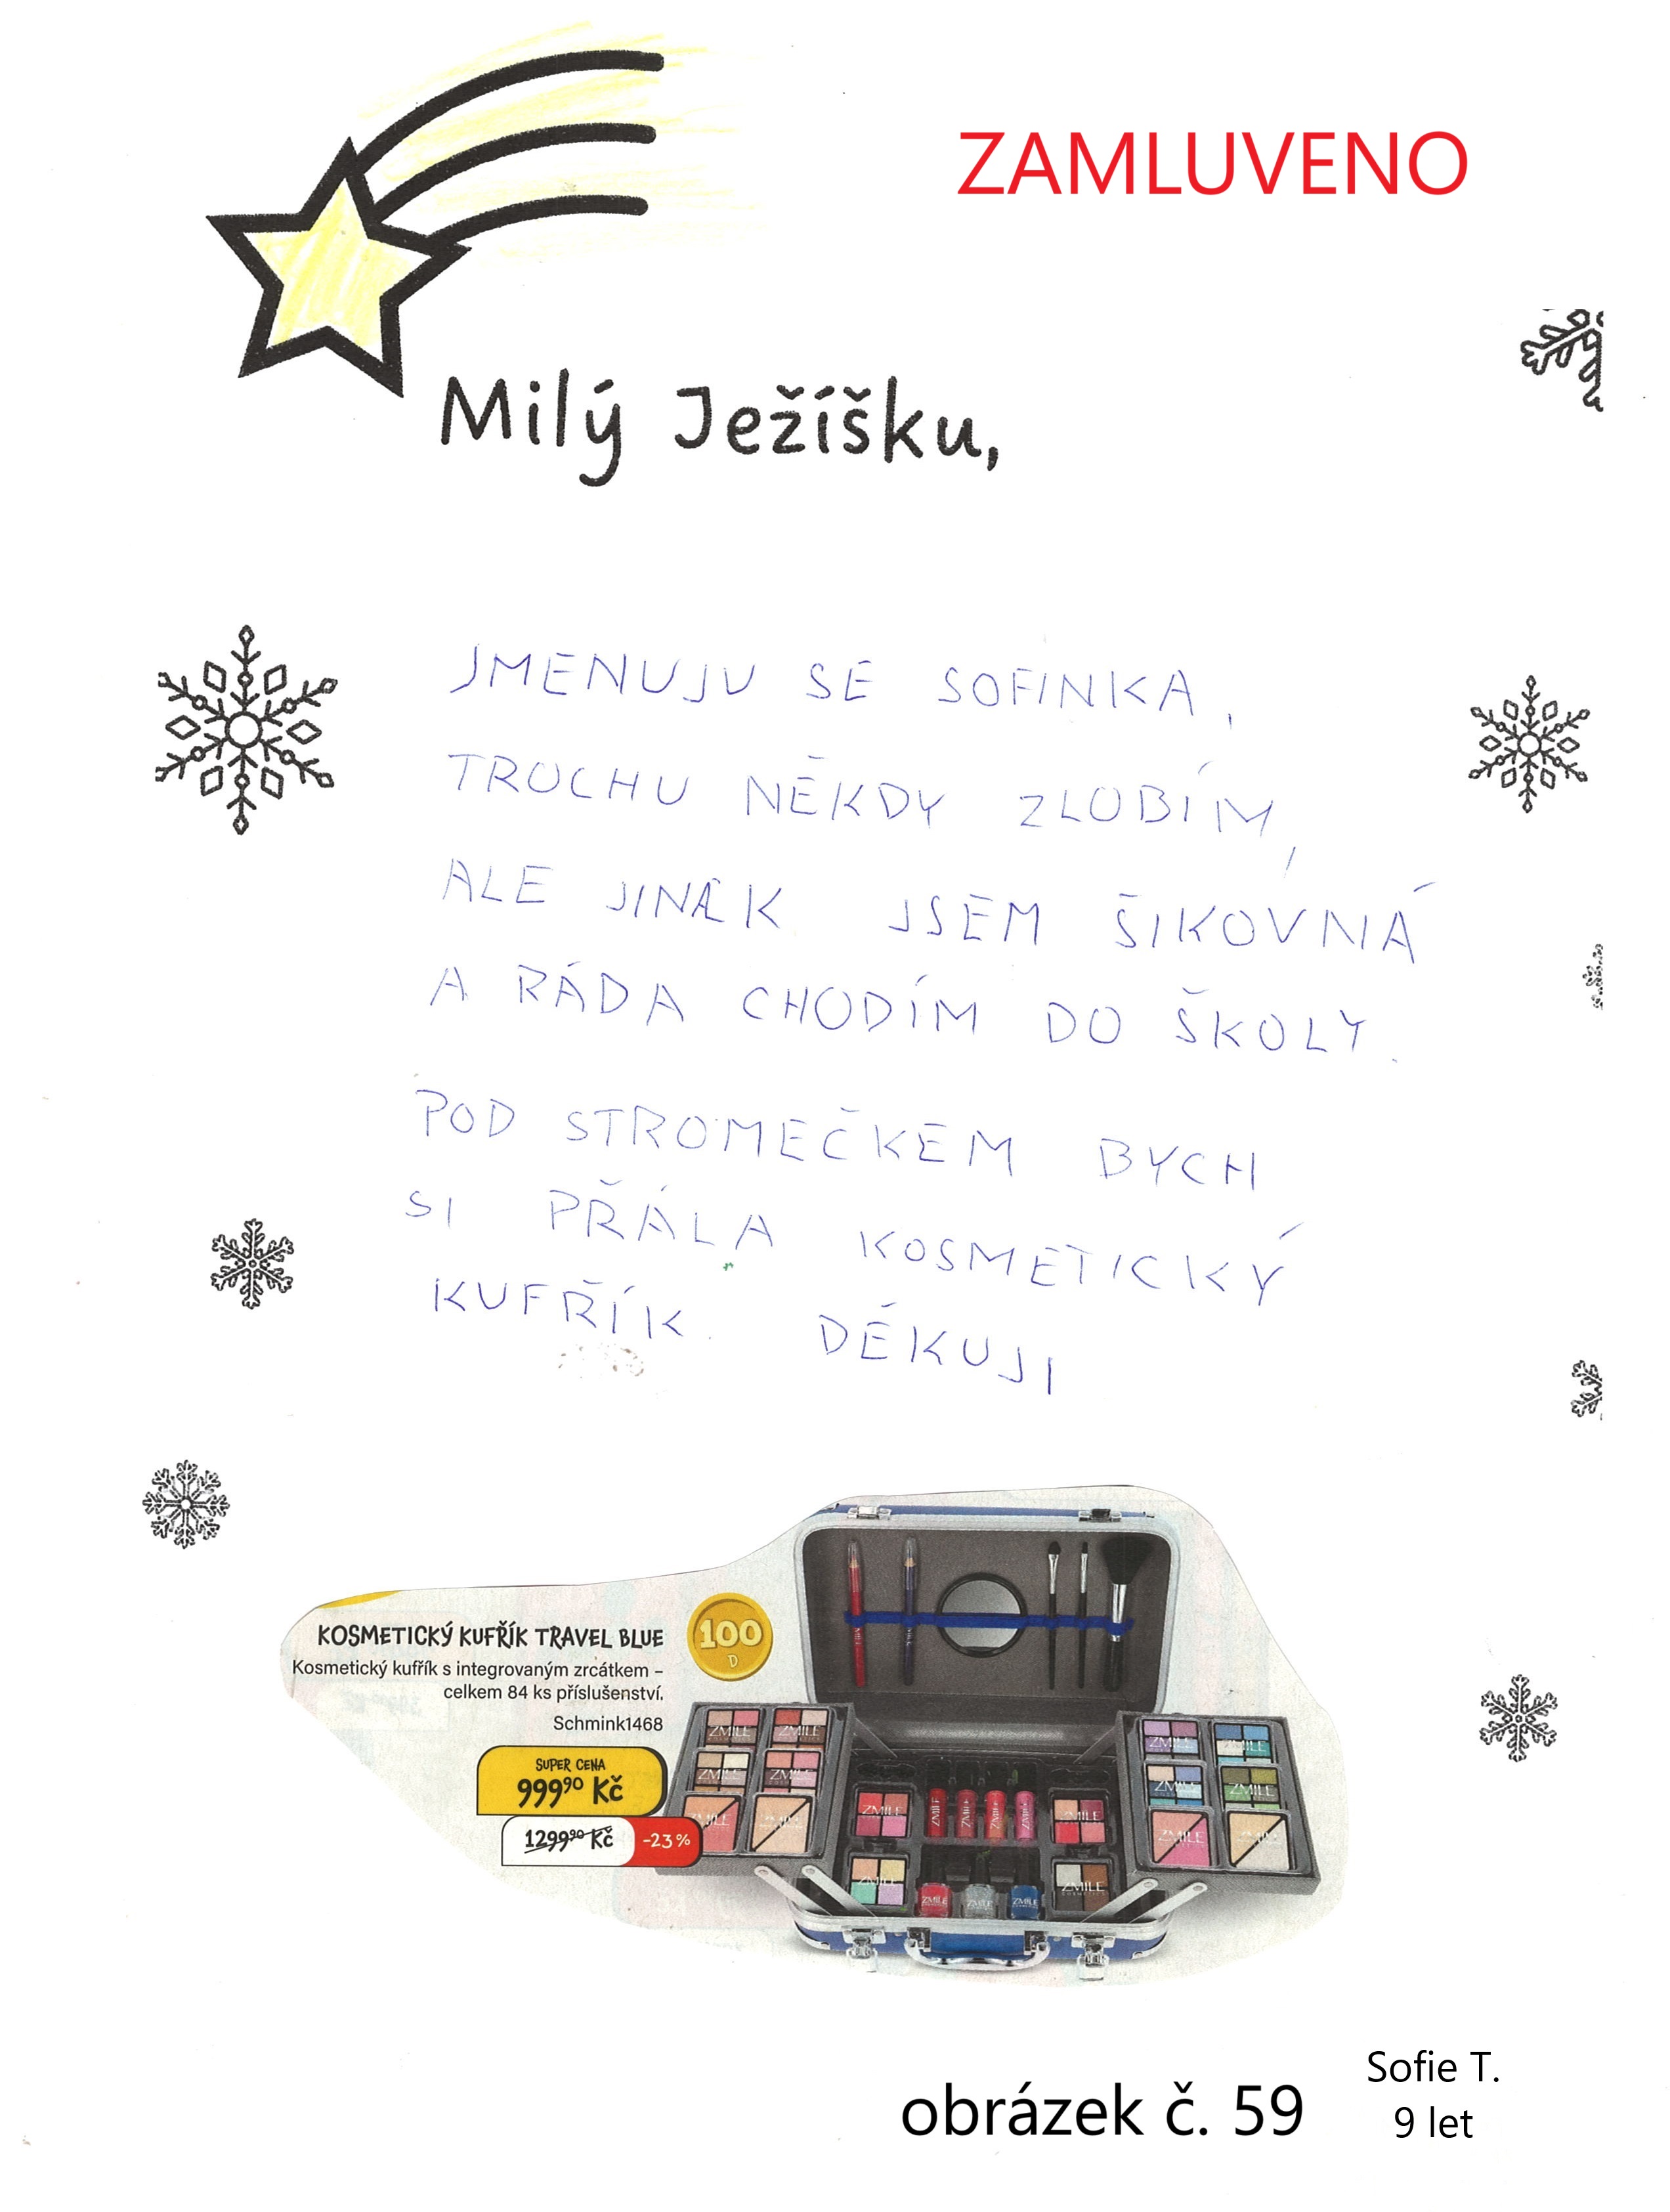 ZAMLUVENO
Milý Ježíšku,
JMENUJU SE SOFINKA,
TROCHU NĚKDY ZLOBÍM,
ALE JINAK JSEM ŠIKOVNÁ
A RÁDA CHODÍM DO ŠKOLY.
POD STROMEČKEM BYCH
SI PŘÁLA KOSMETICKÝ
KUFŘÍK. DĚKUJI
KOSMETICKÝ KUFŘÍK TRAVEL BLUE
Kosmetický kufřík s integrovaným zrcátkem –
celkem 84 ks příslušenství.
Schmink1468
100
D
SUPER CENA
999⁹⁰ Kč
1299⁹⁰ Kč -23%
ZMILE ZMILE ZMILE ZMILE
ZMILE ZMILE ZMILE ZMILE
ZMILE ZMILE ZMILE
ZMILE ZMILE ZMILE
obrázek č. 59
Sofie T.
9 let